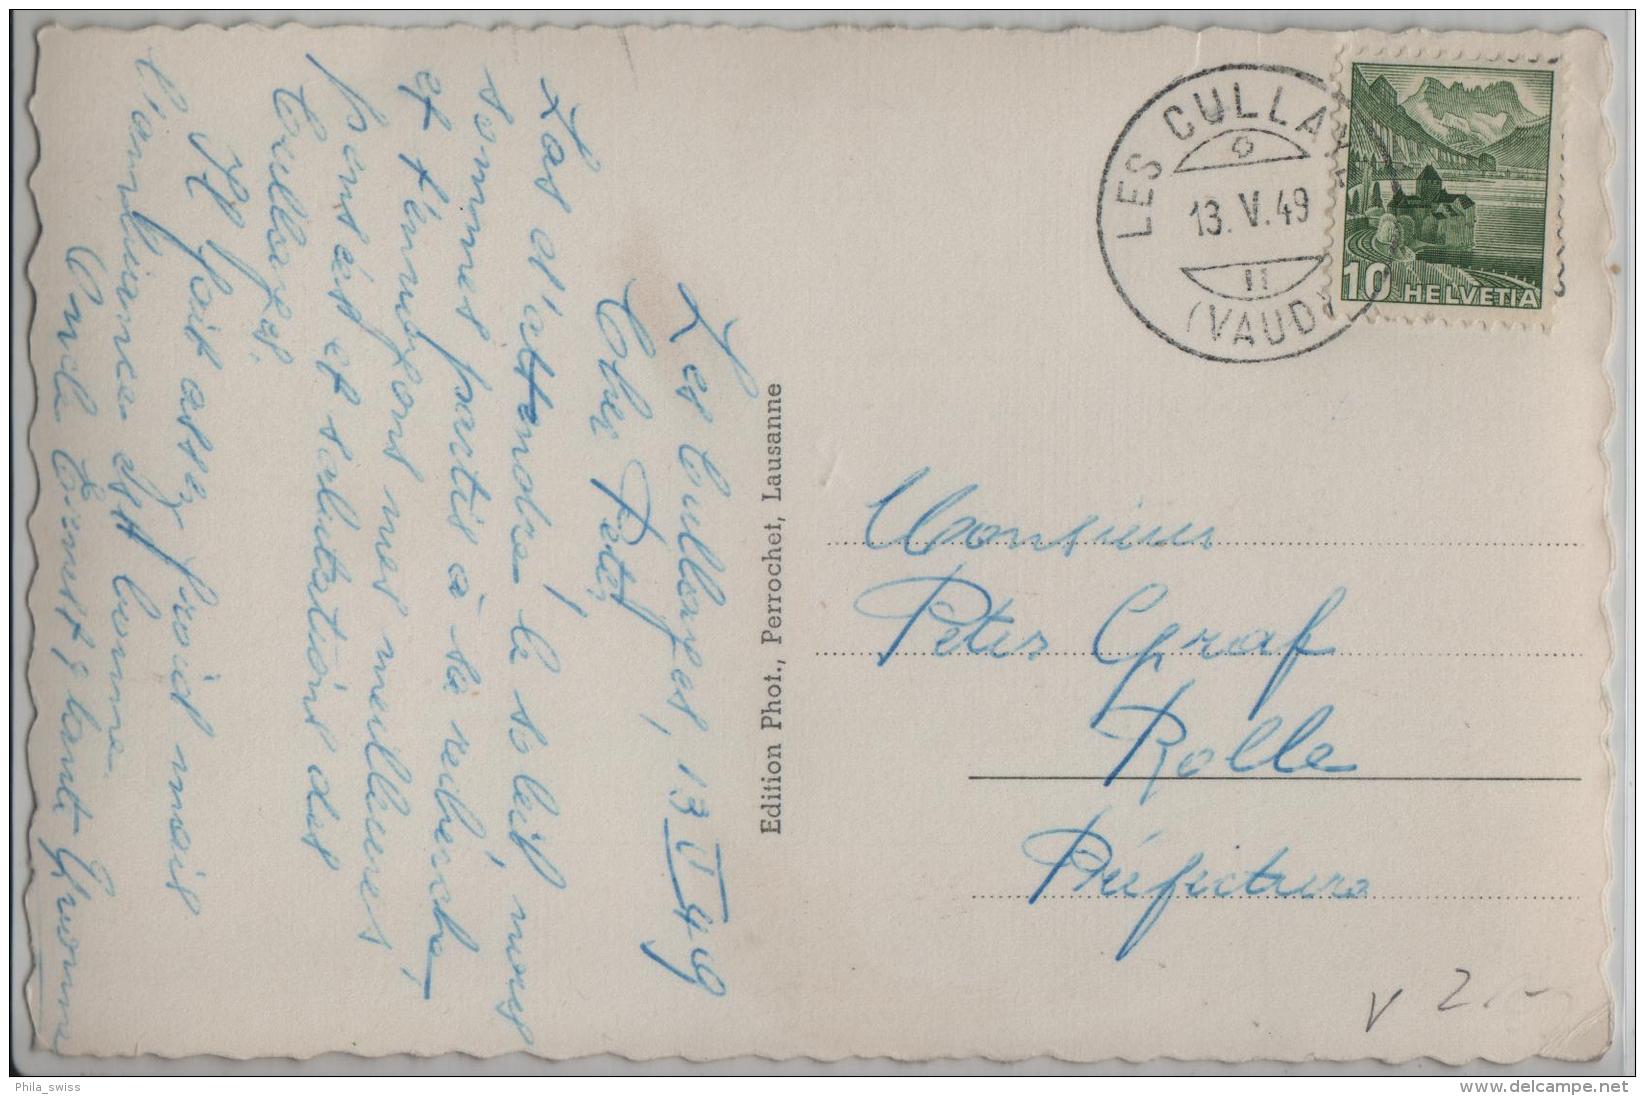 Les Cullayes, 13 V 49
Cher Peter,
Las d'attendre le soleil nous
sommes partis à sa recherche,
et t'envoyons nos meilleures
pensées et salutations des
Cullayes.
Il fait assez froid mais
l'ambiance est bonne.
Oncle Ernest & tante
Edition Phot., Perrochet, Lausanne
LES CULLAYES
13. V. 49
(VAUD)
10 HELVETIA
Monsieur
Peter Graf
Rolle
Préfecture
V 2.-
Phila_swiss
delcampe.net